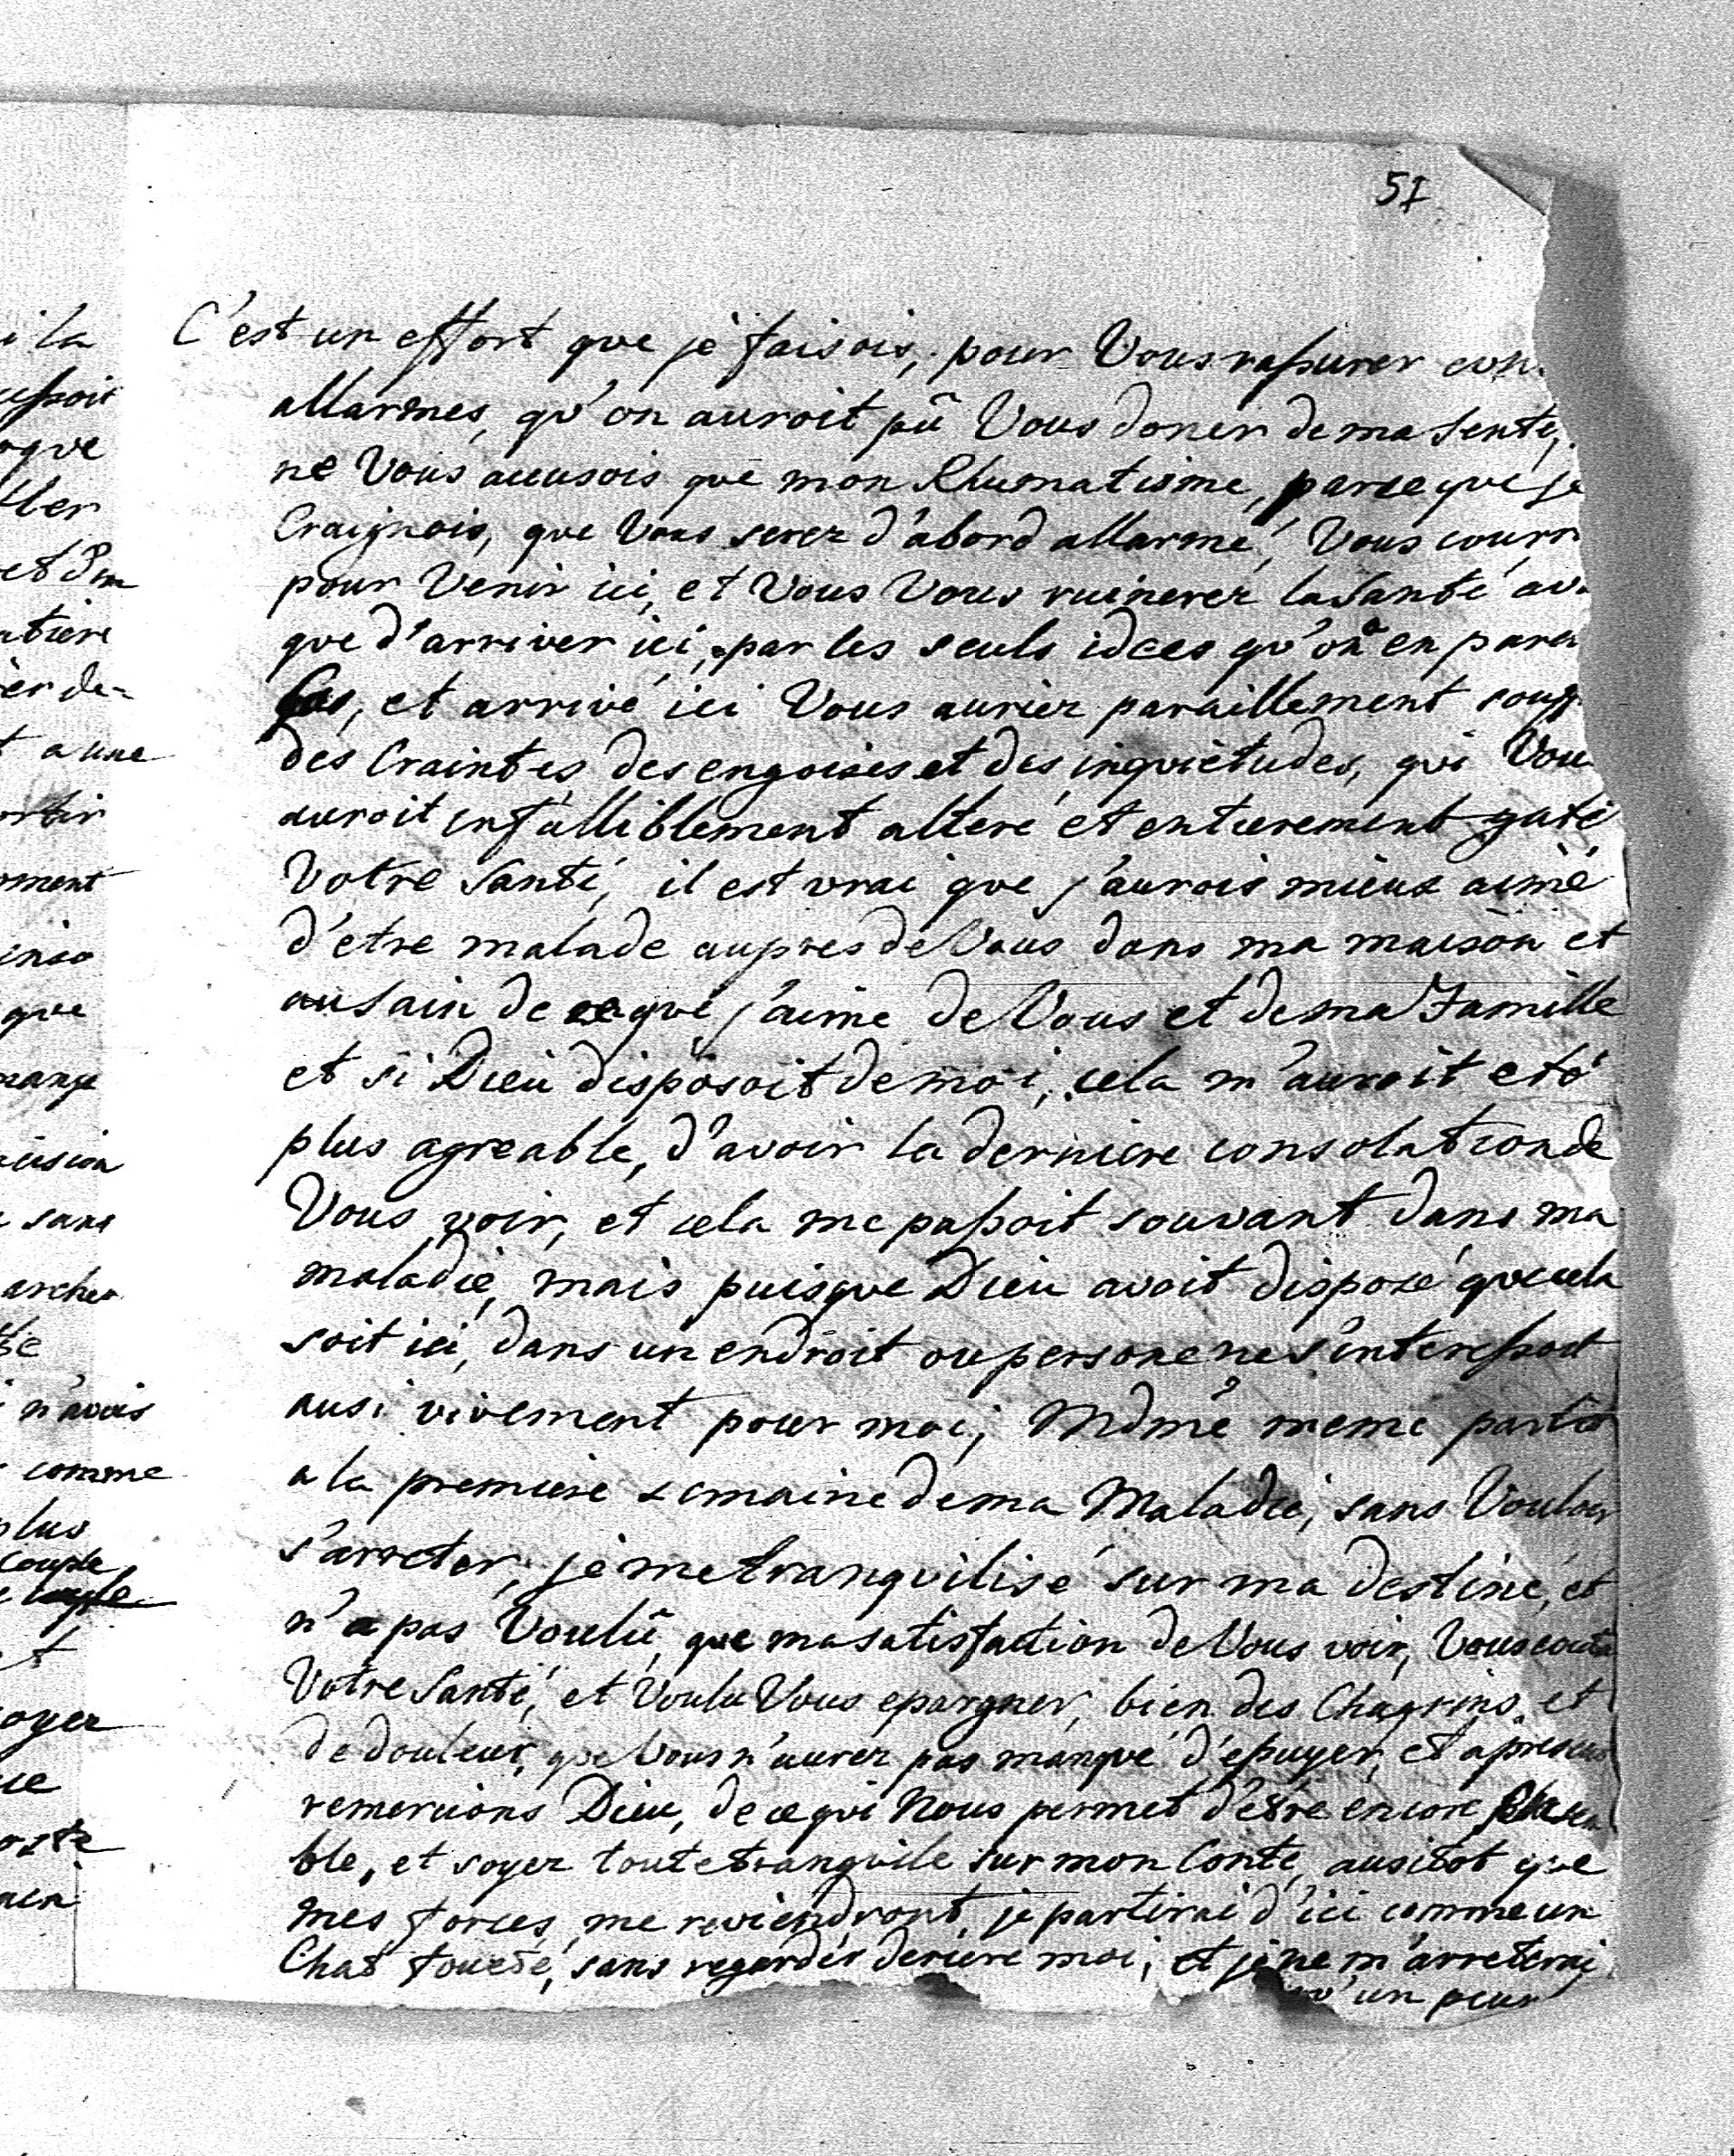 51
C'est un effort que je faisois, pour Vous rassurer con
allarmes, qu'on auroit pû Vous doner de ma sente,
ne Vous accusois que mon Rhumatisme, parce que je
Craignois, que Vous serez d'abord allarmé, Vous courr
pour Venir ici, et Vous Vous ruinerez la Santé av
que d'arriver ici, par les seuls idees qu'on a en parei
Cas, et arrivé ici Vous auriez paraillement souff
des Craintes des engoises et des inquietudes, qui Vou
auroit infalliblement alteré et entierement gaté
Votre Santé, il est vrai que j'aurois mieux aimé
d'etre malade aupres de Vous dans ma maison et
au sain de ce que j'aime de Vous et de ma Famille
et si Dieu disposoit de moi, cela m'auroit eté
plus agreable, d'avoir la derniere consolation de
Vous voir, et cela me passoit souvant dans ma
maladie, mais puisque Dieu avoit disposé que cela
soit ici, dans un endroit ou persone ne s'interessoit
ausi vivement pour moi, Mdme meme partit
a la premiere semaine de ma Maladie, sans Vouloir
s'arreter, je me tranquilisé sur ma destiné, et
n'a pas Voulû, que ma satisfaction de Vous voir, Vous couta
Votre Santé, et Voulu Vous epargner, bien des Chagrins et
de douleur, que Vous n'aurez pas manqué d'essuyer, et apresent
remercions Dieu, de ce qui Nous permet d'être encore ensem
ble, et soyez toute tranquile sur mon Conte, ausitot que
mes forces me reviendront, je partirai d'ici comme un
Chat foueté, sans regarder deriere moi, et je ne m'arreterai
qu'un peur
i la
que
et d'un
er de
t a une
ment
que
cision
sans
archer
n'avois
comme
plus
couple
oyez